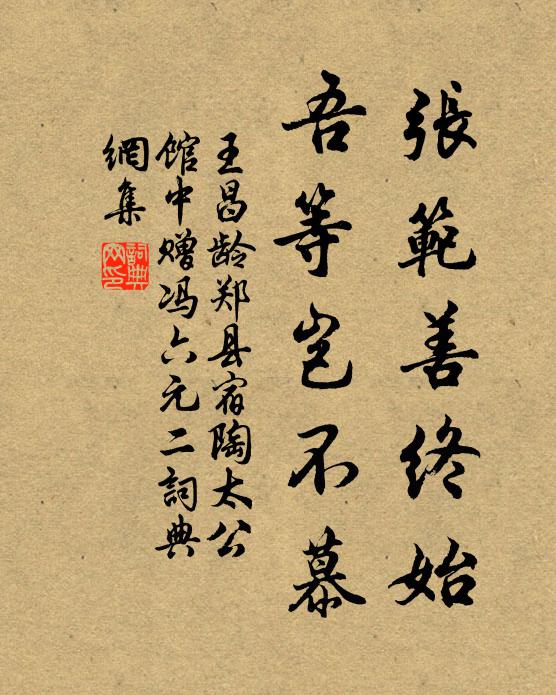 張範善終始
吾等岂不慕
王昌龄郑县宿陶太公
馆中赠冯六元二詞典
網集
詞典
网印